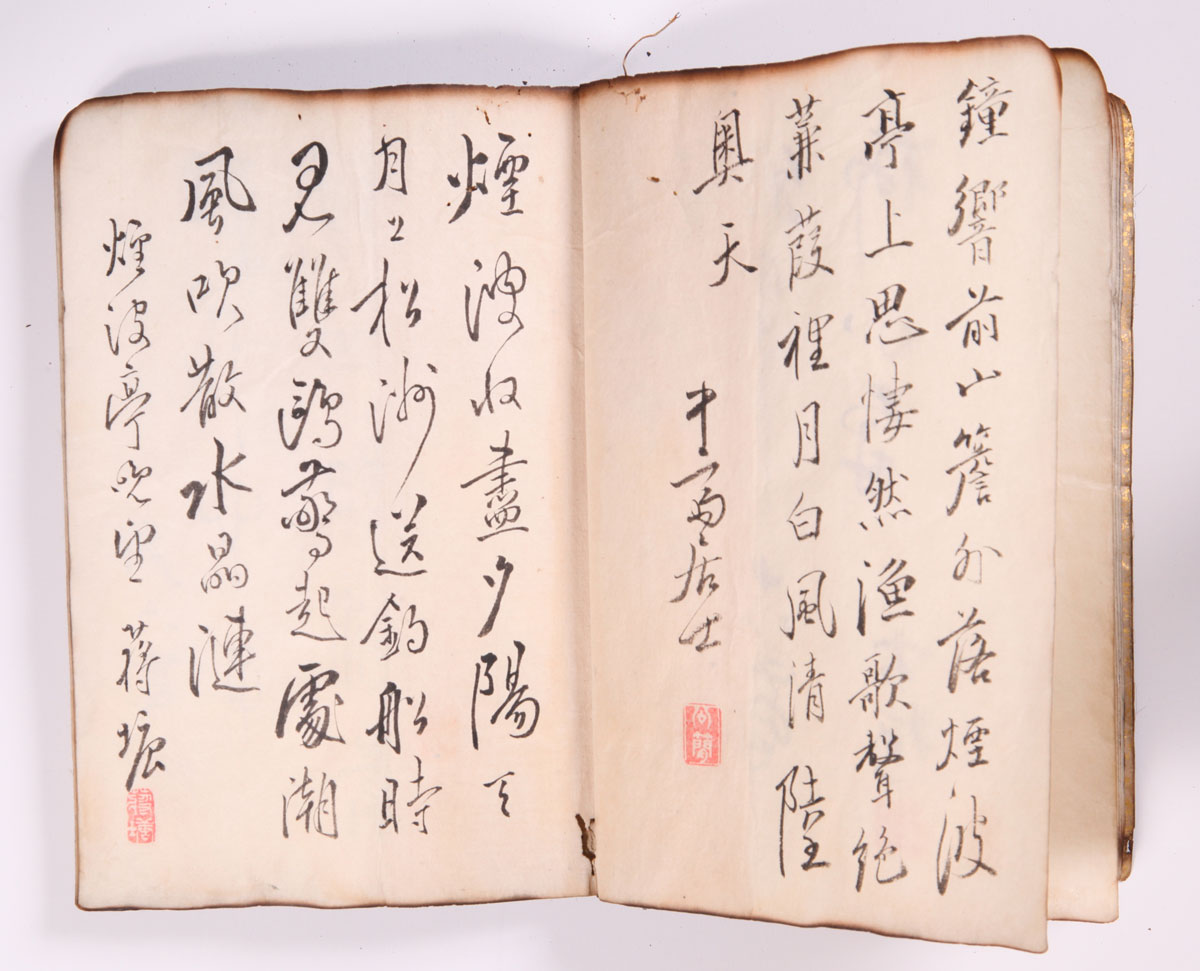 鐘響前山簷外落煙波
亭上思悽然漁歌聲絕
蒹葭裡月白風清陸
奧天
居士
煙波收盡夕陽天
月上松洲送釣船時
見雙鷗驚起處潮
風吹散水晶漣
煙波亭晚望 蔣